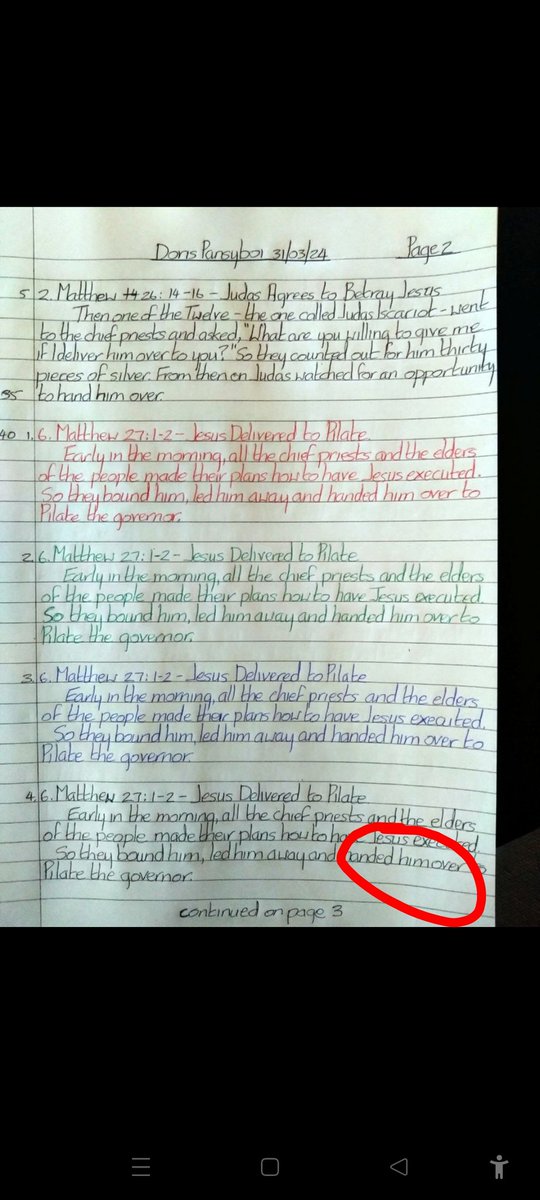 Doris Pansyboi 31/03/24 Page 2
5 2. Matthew 26:14-16 - Judas Agrees to Betray Jesus
Then one of the Twelve - the one called Judas Iscariot - went
to the chief priests and asked, "What are you willing to give me
if I deliver him over to you?" So they counted out for him thirty
pieces of silver. From then on Judas watched for an opportunity
to hand him over.
40 1. 6. Matthew 27:1-2 - Jesus Delivered to Pilate
Early in the morning, all the chief priests and the elders
of the people made their plans how to have Jesus executed.
So they bound him, led him away and handed him over to
Pilate the governor.
2. 6. Matthew 27:1-2 - Jesus Delivered to Pilate
Early in the morning, all the chief priests and the elders
of the people made their plans how to have Jesus executed.
So they bound him, led him away and handed him over to
Pilate the governor.
3. 6. Matthew 27:1-2 - Jesus Delivered to Pilate
Early in the morning, all the chief priests and the elders
of the people made their plans how to have Jesus executed.
So they bound him, led him away and handed him over to
Pilate the governor.
4. 6. Matthew 27:1-2 - Jesus Delivered to Pilate
Early in the morning, all the chief priests and the elders
of the people made their plans how to have Jesus executed.
So they bound him, led him away and handed him over to
Pilate the governor.
continued on page 3